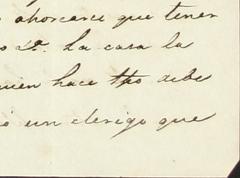 ahorcarse que tener
2º. La casa la
quien hace tpo debe
un clerigo que